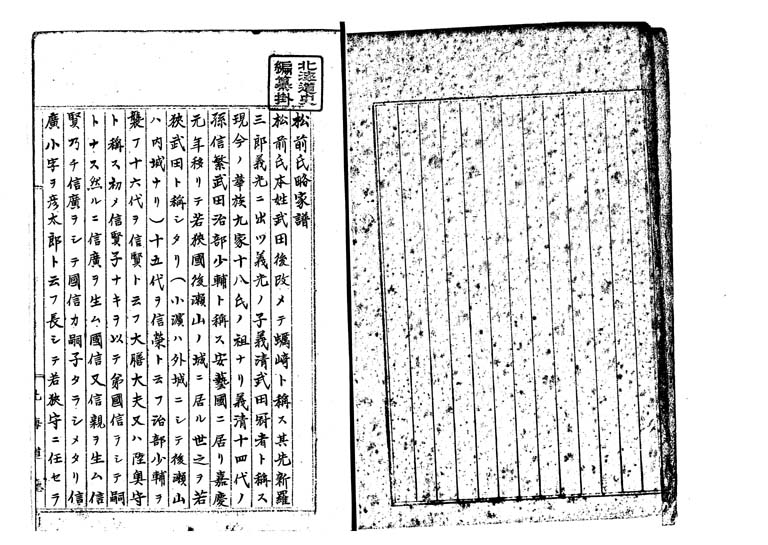 北海道史
編纂掛
松前氏略家譜
松前氏本姓武田後改メテ蠣崎ト稱ス其先新羅
三郎義光ニ出ツ義光ノ子義清武田冠者ト稱ス
現今ノ華族九家十八氏ノ祖ナリ義清十四代ノ
孫信繁武田治部少輔ト稱ス安藝國ニ居リ嘉慶
元年移リテ若狹國後瀬山ノ城ニ居ル世之ヲ若
狹武田ト稱シタリ(小濱ハ外城ニシテ後瀬山
ハ内城ナリ)十五代ヲ信榮ト云フ治部少輔ヲ
襲フ十六代ヲ信賢ト云フ大膳大夫又ハ陸奥守
ト稱ス初メ信賢子ナキヲ以テ弟國信ヲシテ嗣
トナス然ルニ信廣ヲ生ム國信又信親ヲ生ム信
賢乃チ信廣ヲシテ國信カ嗣子タラシメタリ信
廣小字ヲ彦太郎ト云フ長シテ若狹守ニ任セラ
北海道廳